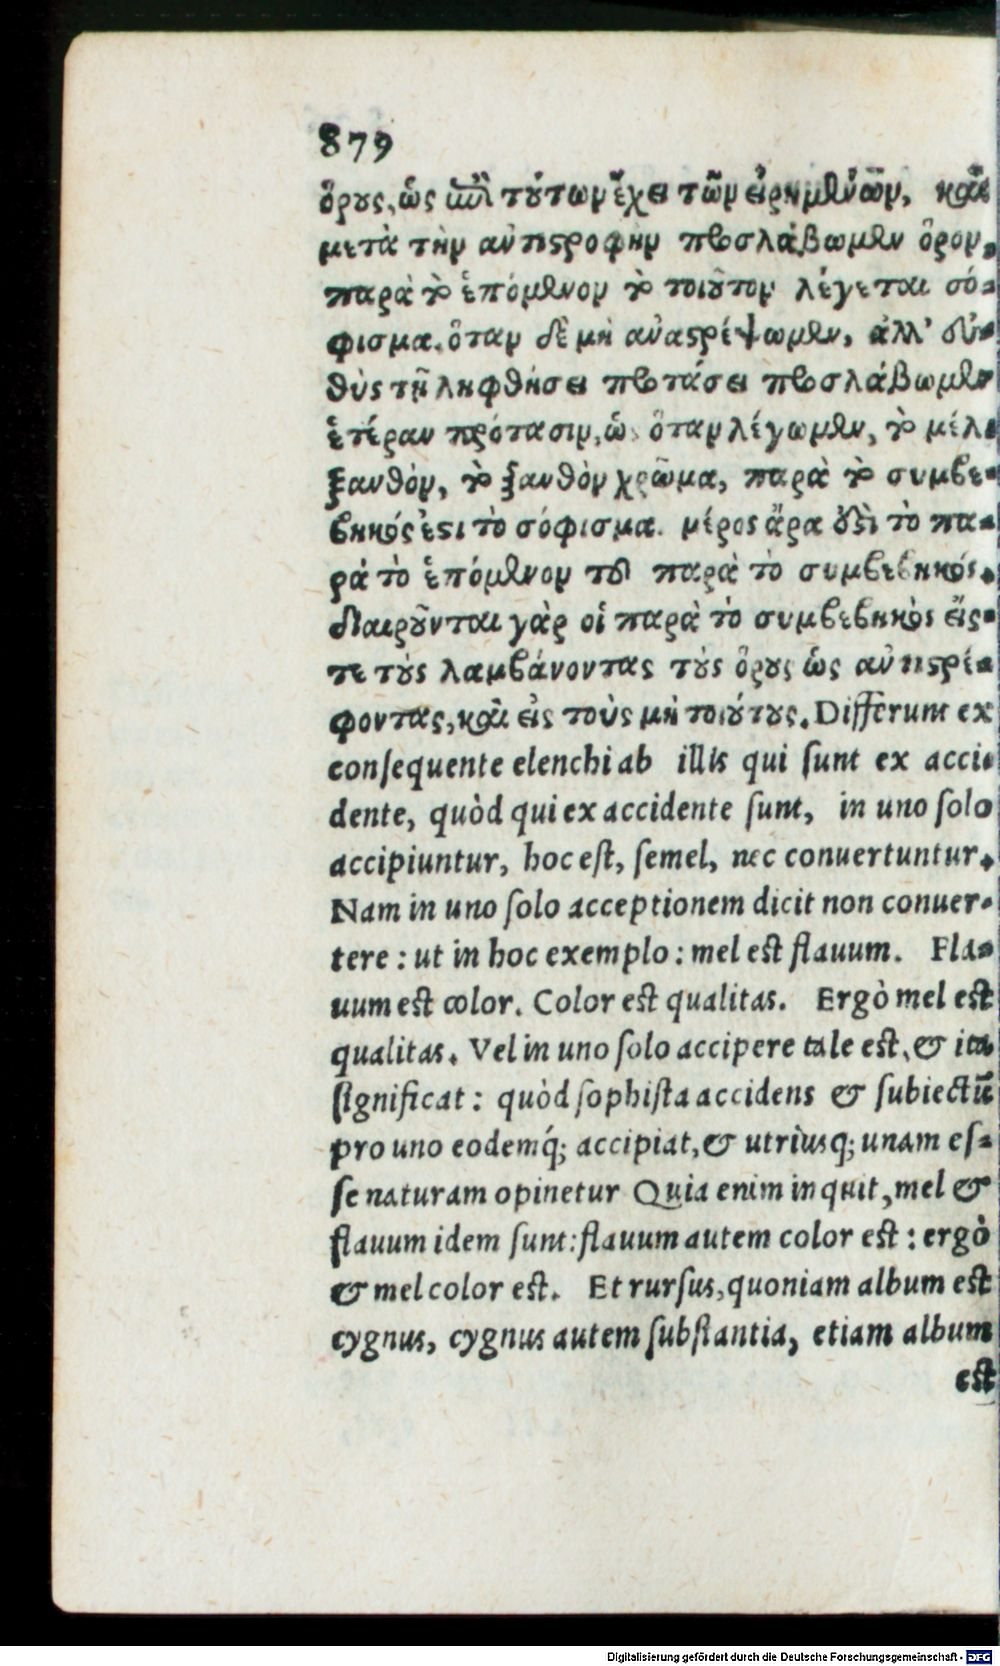 879
ὅρους, ὡς ἐπὶ τούτων ἔχει τῶν εἰρημένων, καὶ
μετὰ τὴν ἀντιστροφὴν προσλάβωμεν ὅρον,
παρὰ τὸ ἑπόμενον τὸ τοιοῦτον λέγεται σό-
φισμα. ὅταν δὲ μὴ ἀναστρέψωμεν, ἀλλ' εὐ-
θὺς τῇ ληφθήσει προτάσει προσλάβωμεν
ἑτέραν πρότασιν, ὡς ὅταν λέγωμεν, τὸ μέλι
ξανθόν, τὸ ξανθὸν χρῶμα, παρὰ τὸ συμβε-
βηκός ἐστι τὸ σόφισμα. μέρος ἄρα ἐστὶ τὸ πα-
ρὰ τὸ ἑπόμενον τοῦ παρὰ τὸ συμβεβηκός.
διαιροῦνται γὰρ οἱ παρὰ τὸ συμβεβηκὸς εἴς-
τε τοὺς λαμβάνοντας τοὺς ὅρους ὡς ἀντιστρέ-
φοντας, καὶ εἰς τοὺς μὴ τοιούτους. Differunt ex
consequente elenchi ab illis qui sunt ex acci-
dente, quòd qui ex accidente sunt, in uno solo
accipiuntur, hoc est, semel, nec conuertuntur.
Nam in uno solo acceptionem dicit non conuer-
tere : ut in hoc exemplo : mel est flauum. Fla-
uum est color. Color est qualitas. Ergò mel est
qualitas. Vel in uno solo accipere tale est, & ita
significat : quòd sophista accidens & subiectū
pro uno eodemq́; accipiat, & utriusq; unam es-
se naturam opinetur Quia enim inquit, mel &
flauum idem sunt: flauum autem color est : ergò
& mel color est. Et rursus, quoniam album est
cygnus, cygnus autem substantia, etiam album
est
Digitalisierung gefördert durch die Deutsche Forschungsgemeinschaft - DFG